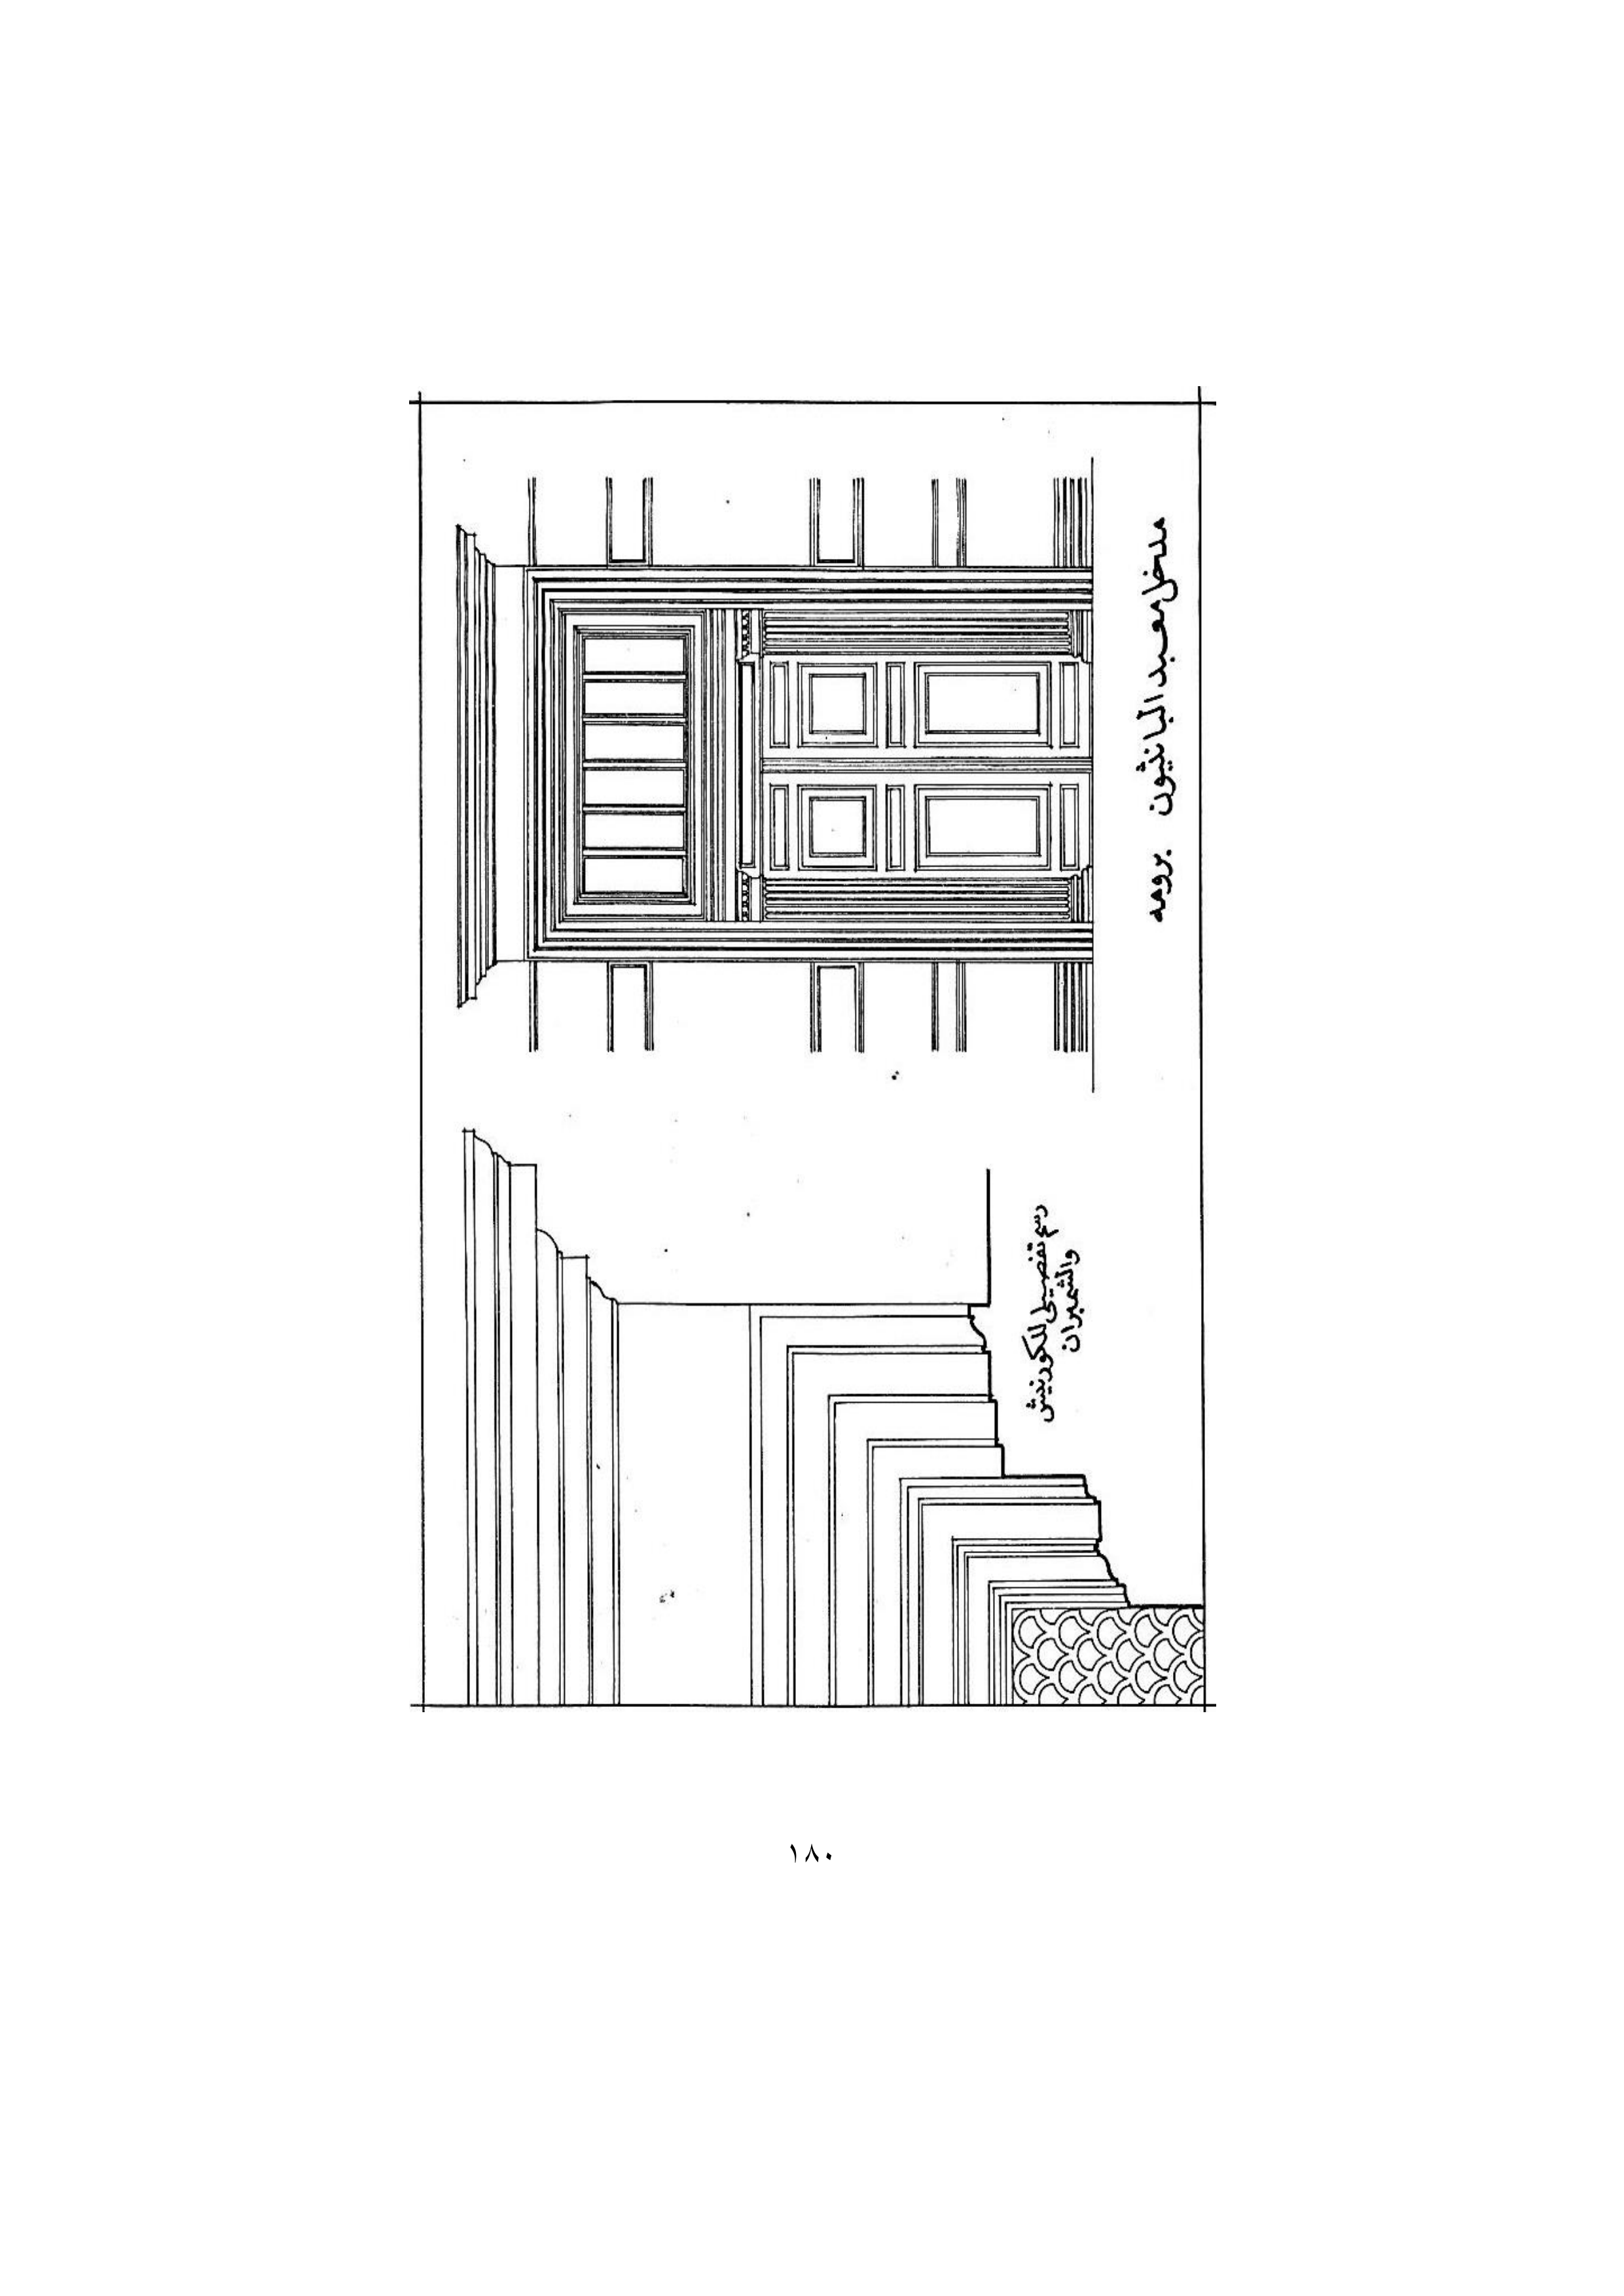 مدخل معبد البانثيون برومه
رسم تفصيلى للكورنيش
والشمبران
١٨٠